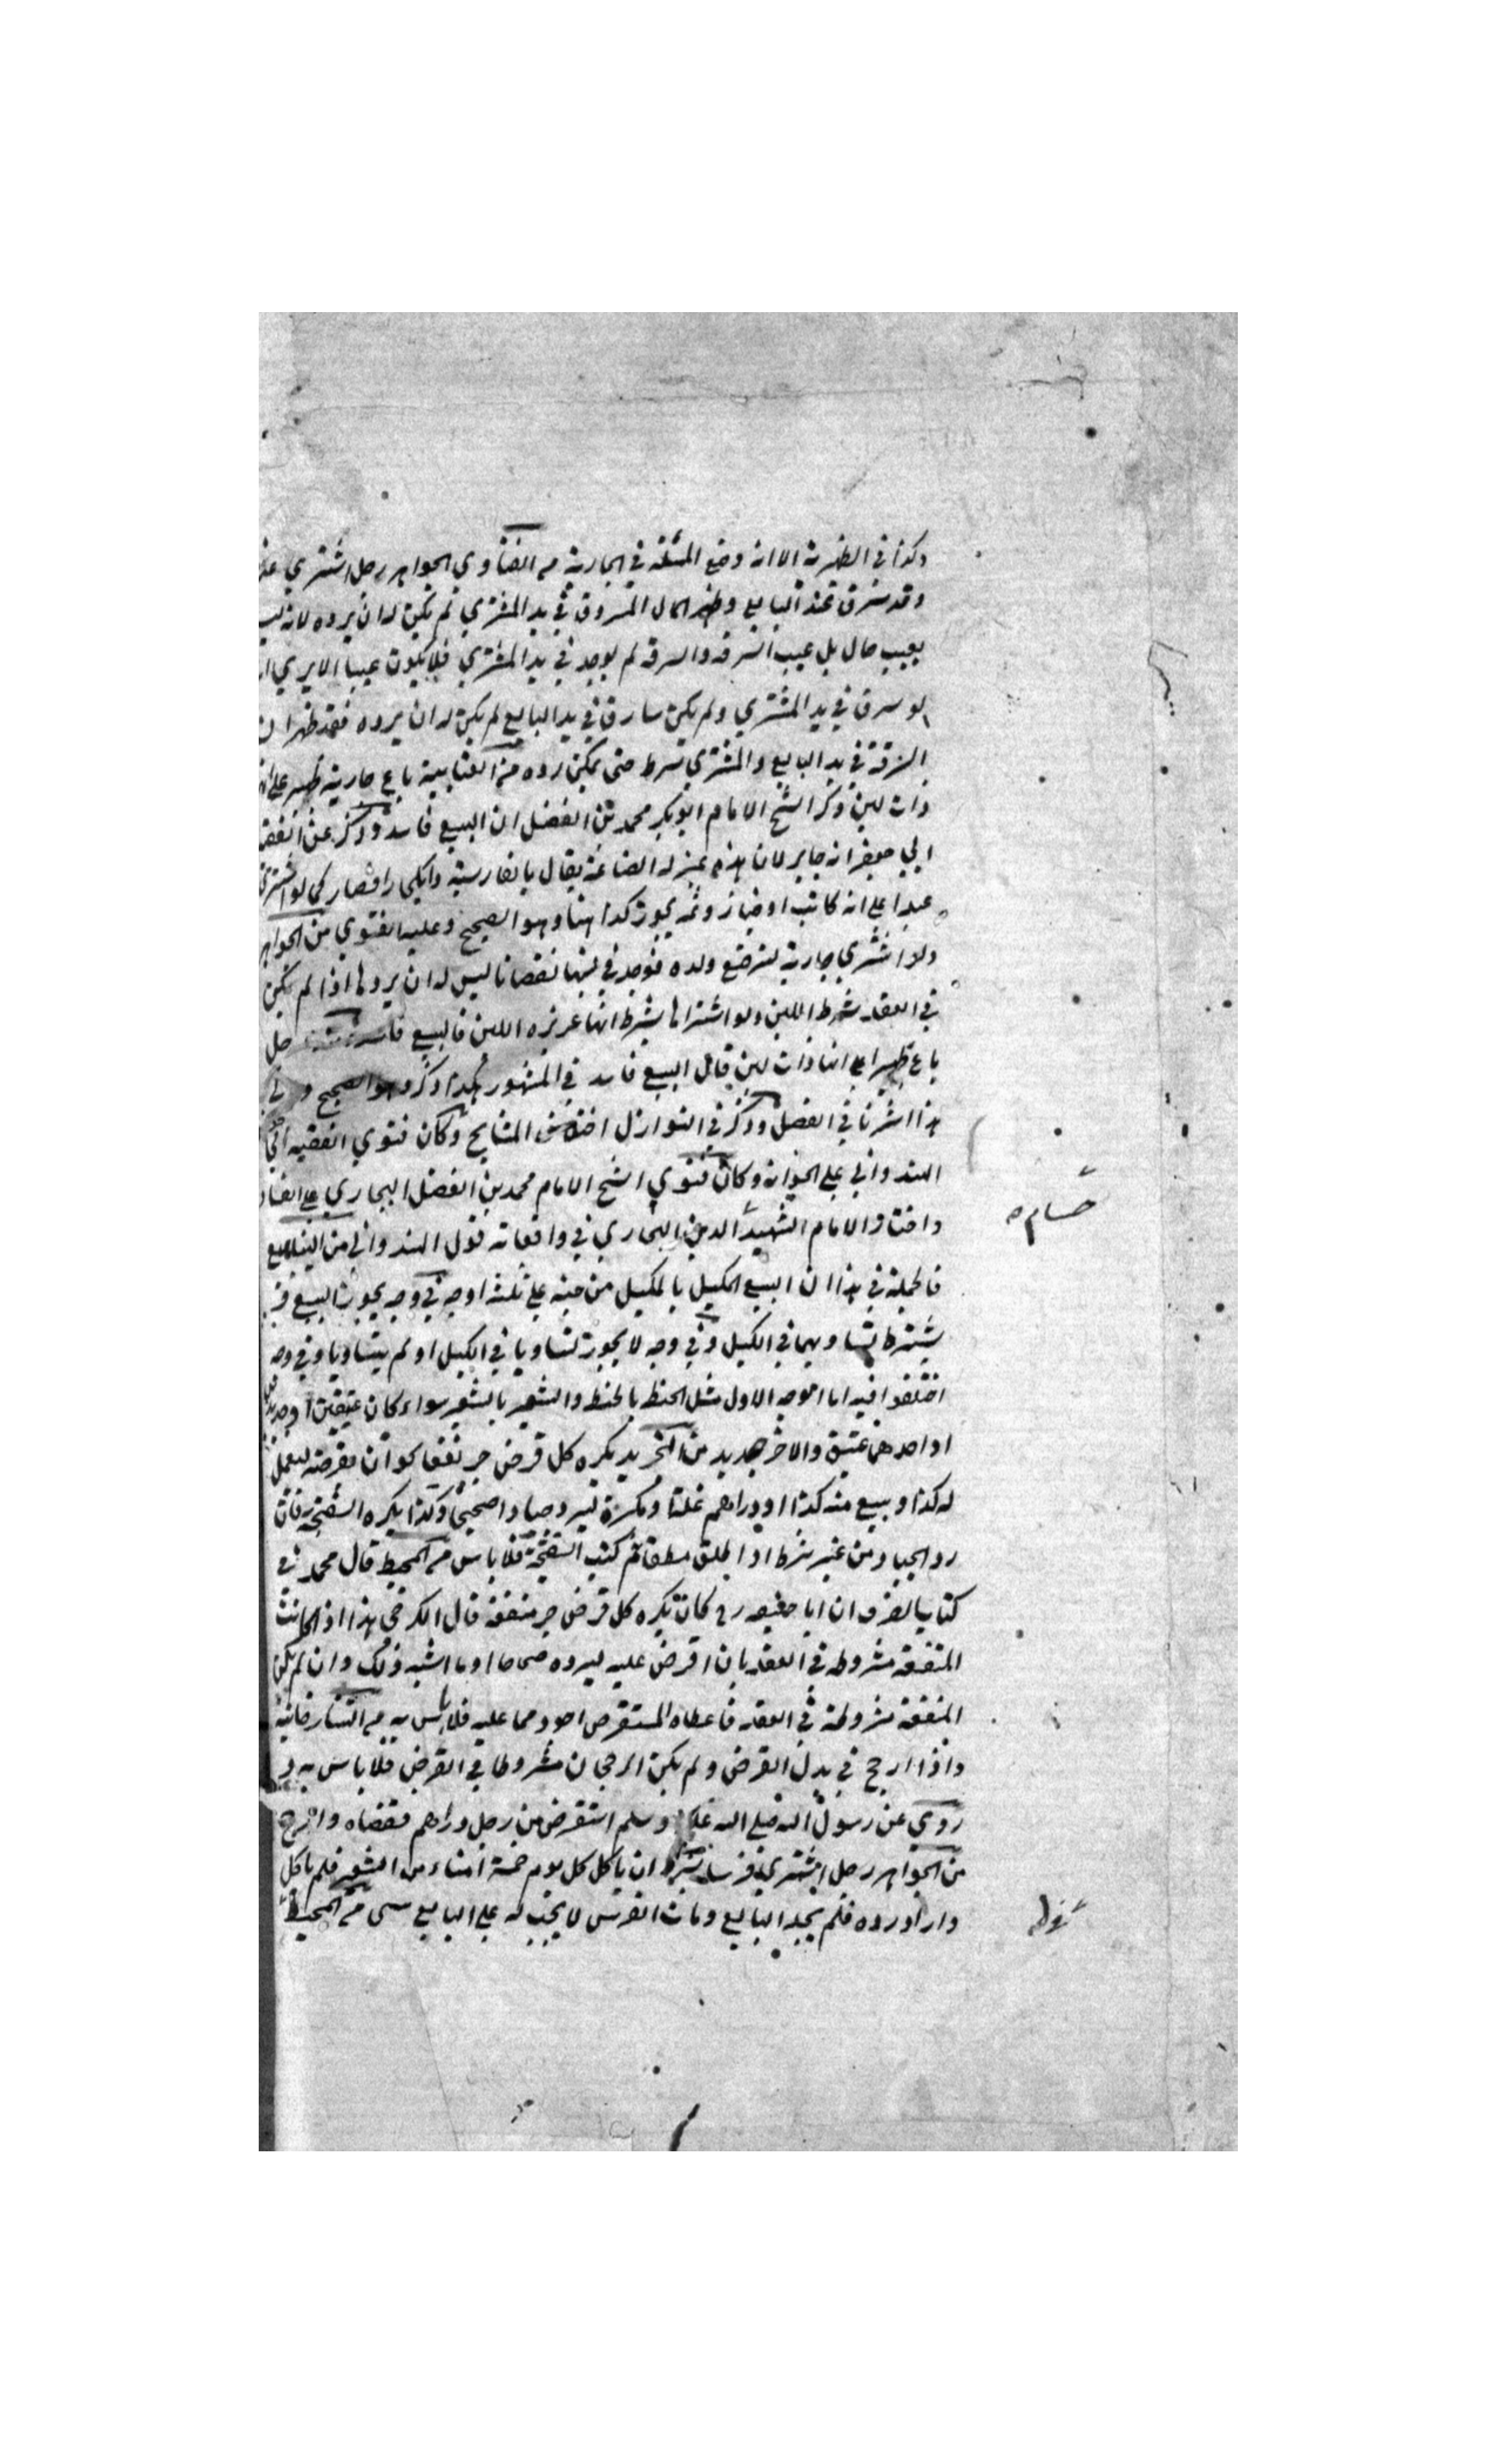 وكذا في الظهيرية الا انه وضع المسئلة في الجارية من الفتاوي الجواهر رجل اشتري
وقد سرق عند البايع وظهر المال المسروق في يد المشتري لم يكن له ان يرده لانه ليس
بعيب حال بل عيب السرقه والسرقه لم يوجد في يد المشتري فلا يكون عيبا الا يري
لو سرق في يد المشتري ولم يكن سارق في يد البايع لم يكن له ان يرده فقد ظهر ان
السرقة في يد البايع والمشتري شرط حتى يمكن رده من العتابية باع جارية علي انها
ذات لبن ذكر الشيخ الامام ابو بكر محمد بن الفضل ان البيع فاسد وذكر عن الفقيه
ابي جعفر انه جايز لان هذه بمنزله الصناعة يقال بالفارسية كما لو اشتري
عبدا علي انه كاتب او خباز وثمه يجوز كذا هنا وهو الصحيح وعليه الفتوي من الجواهر
ولو اشتري جارية لترضع ولده فوجد في لبنها نقصانا ليس له ان يردها اذا لم يكن
في العقد شرط اللبن ولو اشتراها بشرط انها غزيره اللبن فالبيع فاسد رجل
باع ظهيرا علي انها ذات لبن قال البيع فاسد في المشهور هكذا ذكر وهو الصحيح
هذا اشرنا في الفصل وذكر في النوازل اختلاف المشايخ وكان فتوي الفقيه ابي
الهندواني علي الجواز وكان فتوي الشيخ الامام محمد بن الفضل البخاري علي الفساد
واختار الامام الشهيد الدين البخاري في واقعاته قول الهندواني من
حسام
فالجملة في هذا ان البيع المكيل بالمكيل من جنسه علي ثلثه اوجه في وجه يجوز البيع
يشترط تساويهما في الكيل وفي وجه لا يجوز تساويا في الكيل او لم يتساويا وفي وجه
اختلفوا فيه اما الوجه الاول مثل الحنطه بالحنطه والشعير بالشعير سواء كان عتيقين او جديدين
او احدهما عتيق والاخر جديد من التجريد يكره كل قرض جر نفعا كو ان يقرضه ليعمل
له كذا ويبيع منه كذا او دراهم غلتا ليرد وكذا يكره السفتجه فان
رد الجياد من غير شرط او اطلق مطلقا ثم كتب السفتجة فلا باس من المحيط قال محمد في
كتاب الصرف ان ابا حنيفه رح كان يكره كل قرض جر منفعة قال الكرخي هذا اذا كانت
المنفعة مشروطه في العقد بان اقرض عليه ليرده صحاحا او ما اشبه ذلك وان لم يكن
المنفعة مشروطة في العقد فاعطاه المستقرض اجود مما عليه فلا باس به من التتارخانية
واذا ارجح في بدل القرض ولم يكن الرجحان مشروطا في القرض فلا باس به
روي عن رسول الله صلي الله عليه وسلم استقرض من رجل دراهم فقضاه وارجح
من الجواهر رجل اشتري فرسا بشرط ان ياكل كل يوم خمسة امناء من الشعير فلم ياكل
واراد رده فلم يجد البايع ومات الفرس لا يجب له علي البايع شي من المحيط